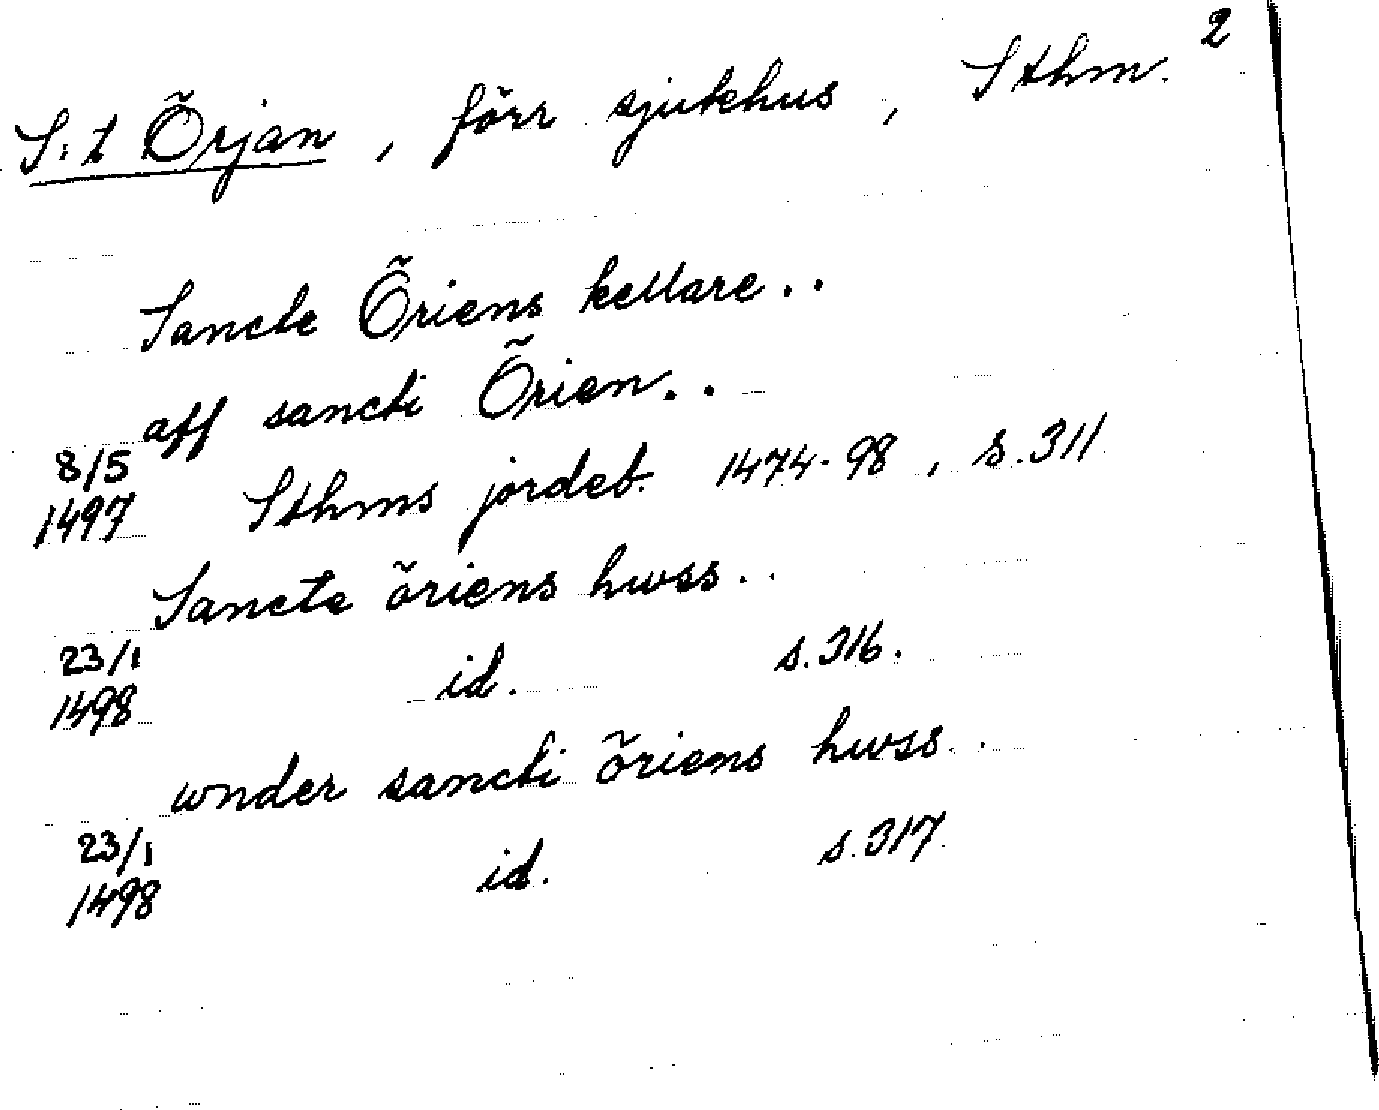 2
S:t Örjan, förr sjukhus, Sthm.
Sancte Öriens kellare..
aff sancti Örien..
8/5
1497 Sthms jordeb. 1474-98, s.311
Sancte öriens hwss..
23/1
1498 id. s.316.
wnder sancti öriens hwss..
23/1
1498 id. s.317.